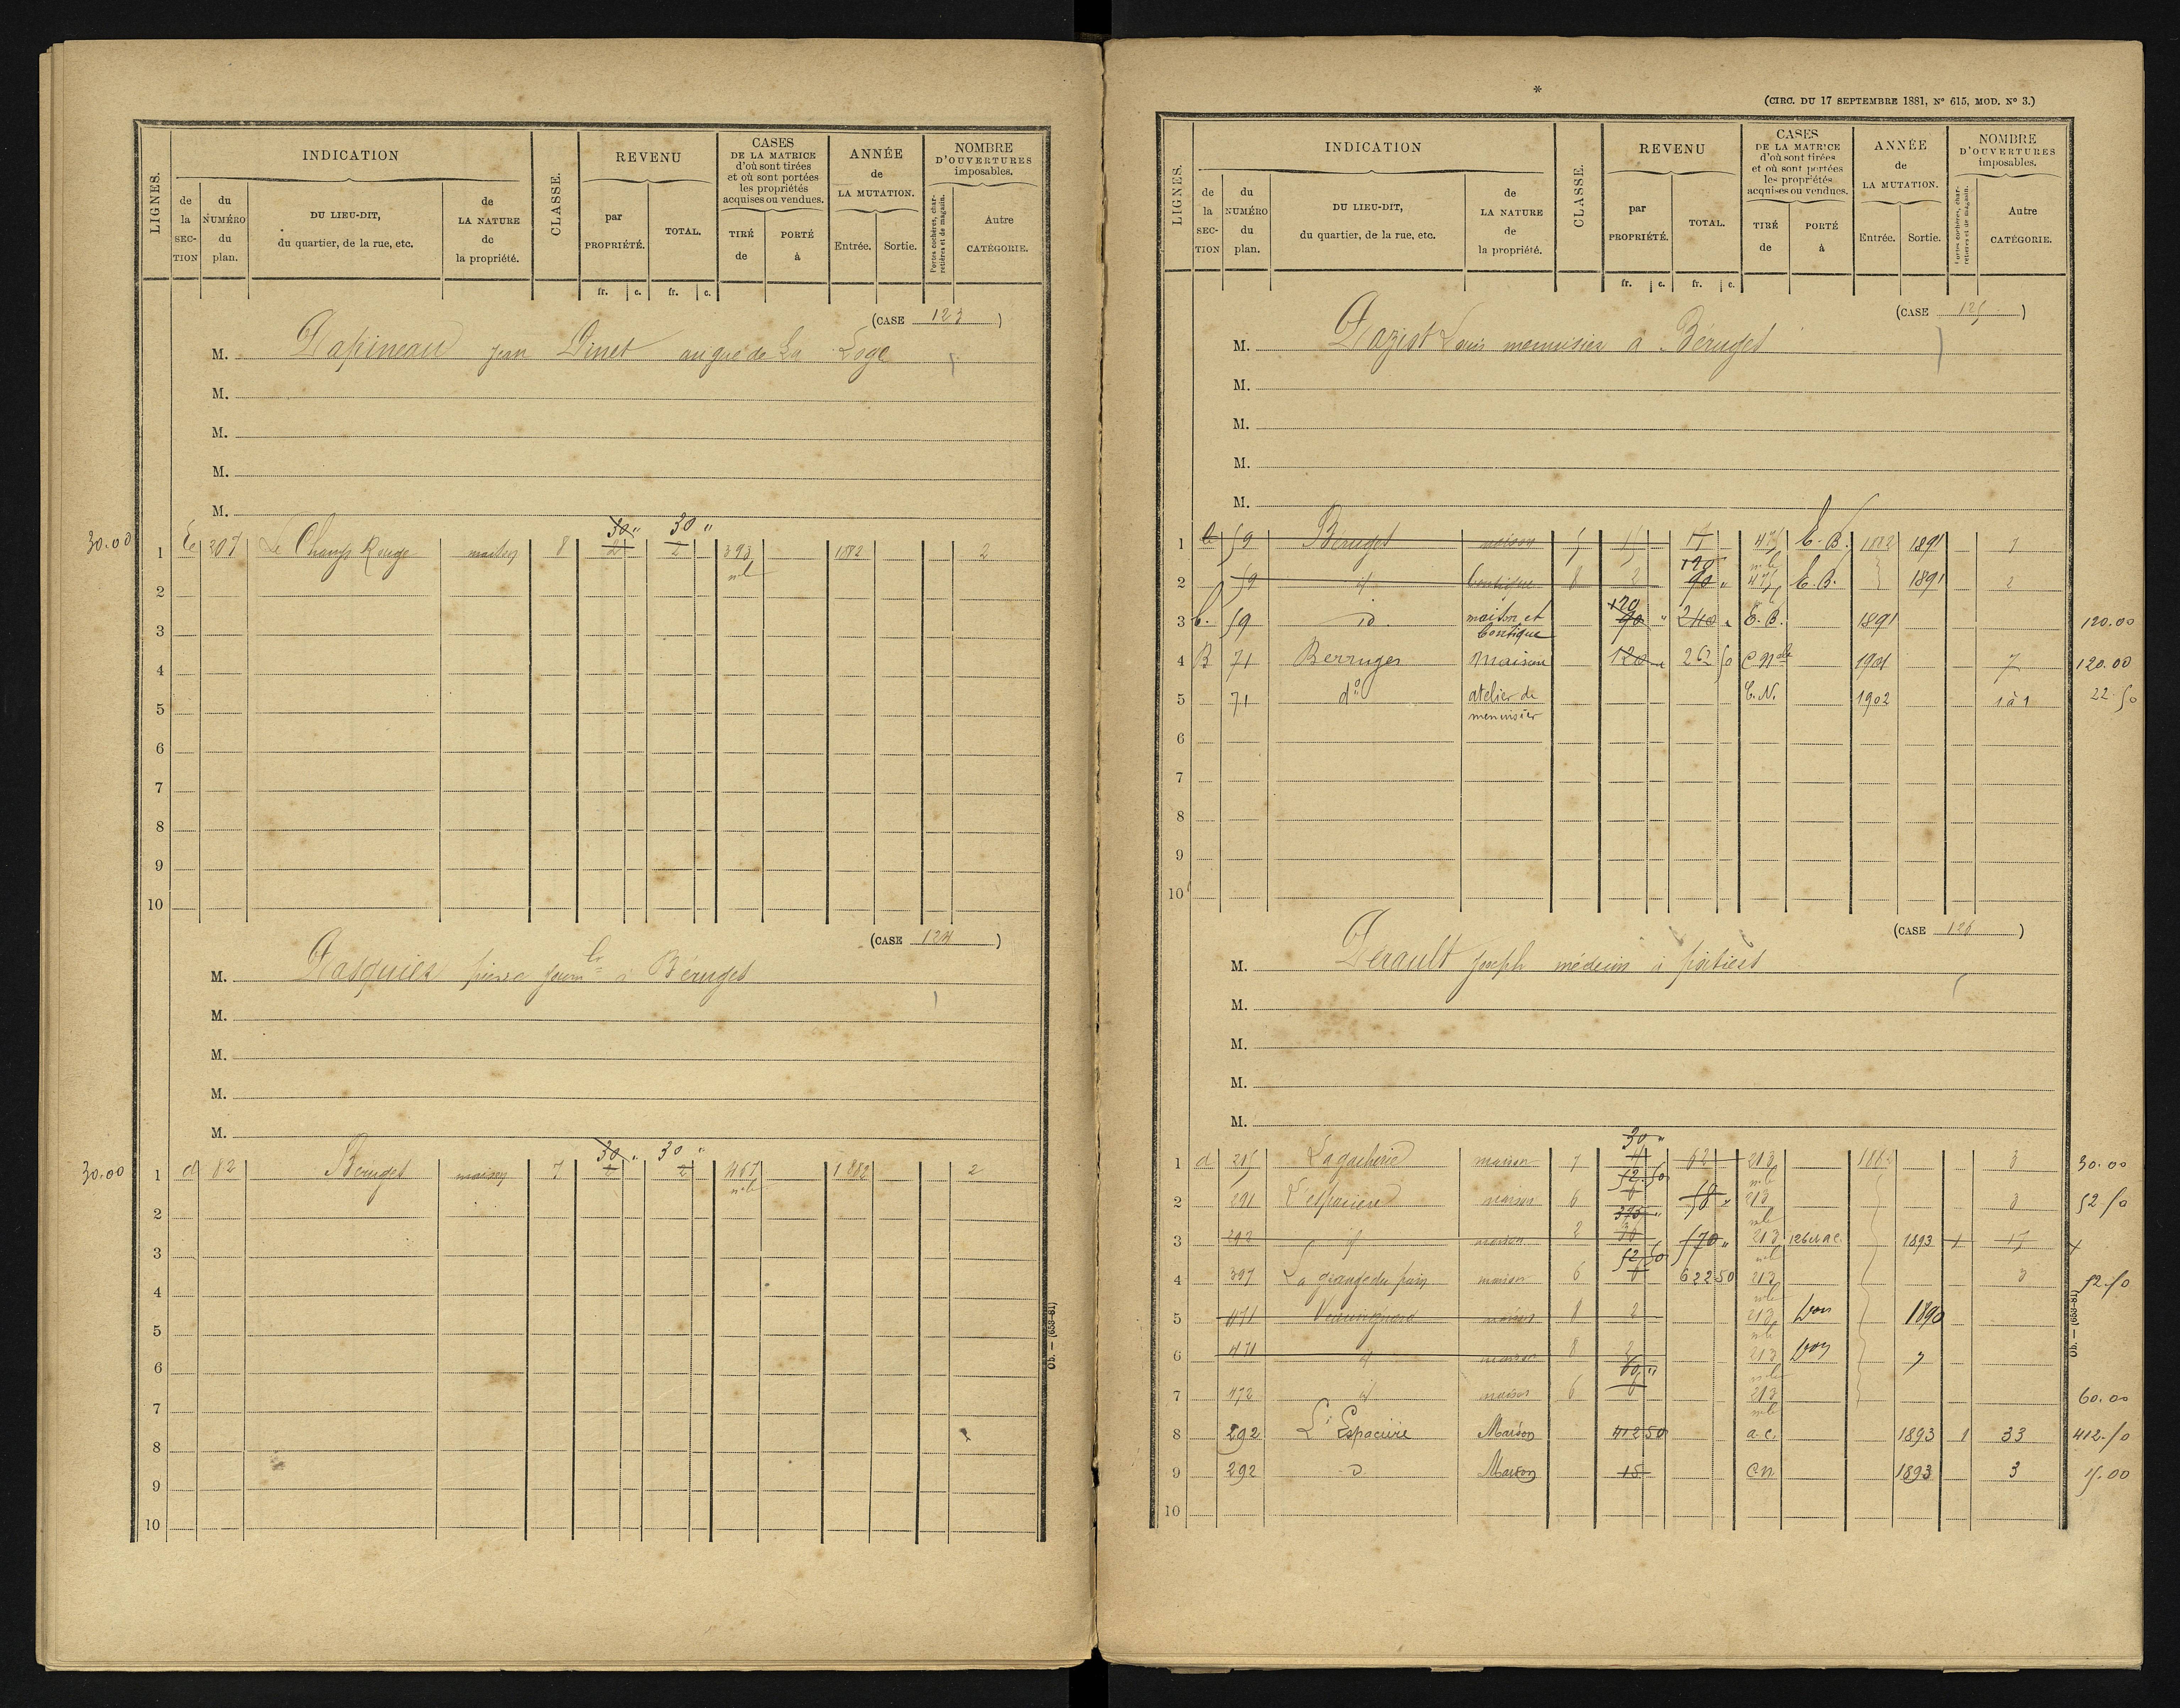 LIGNES.
INDICATION
de la SECTION
du NUMÉRO du plan.
DU LIEU-DIT, du quartier, de la rue, etc.
de LA NATURE de la propriété.
CLASSE.
REVENU
par PROPRIÉTÉ.
TOTAL.
CASES DE LA MATRICE d'où sont tirées et où sont portées les propriétés acquises ou vendues.
TIRÉ de
PORTÉ à
ANNÉE de LA MUTATION.
Entrée.
Sortie.
NOMBRE D'OUVERTURES imposables.
Portes cochères, charretières et de magasin.
Autre CATÉGORIE.
fr. c. fr. c.
(CASE 123)
M. Papineau Jean Dinet au gué de La Loge
M.
M.
M.
M.
30 " 30 "
30.00 1 207 Le Champ Rouge maison 8 2 2 393 1882 2
nle
2
3
4
5
6
7
8
9
10
(CASE 124)
M. Pasquier pierre à Béruges
M.
M.
M.
M.
30 " 30 "
30.00 1 d 82 Béruges maison 7 2 467 1882 2
nle
2
3
4
5
6
7
8
9
10
Ob. — (653-81)
*
(CIRC. DU 17 SEPTEMBRE 1881, No 615, MOD. No 3.)
LIGNES.
INDICATION
de la SECTION
du NUMÉRO du plan.
DU LIEU-DIT, du quartier, de la rue, etc.
de LA NATURE de la propriété.
CLASSE.
REVENU
par PROPRIÉTÉ.
TOTAL.
CASES DE LA MATRICE d'où sont tirées et où sont portées les propriétés acquises ou vendues.
TIRÉ de
PORTÉ à
ANNÉE de LA MUTATION.
Entrée.
Sortie.
NOMBRE D'OUVERTURES imposables.
Portes cochères, charretières et de magasin.
Autre CATÉGORIE.
fr. c. fr. c.
(CASE 125)
M. Louis menuisier à Béruges
M.
M.
M.
M.
1 59 Béruges maison 5 15 475 C.B. 1882 1891 7
120 nle
2 59 id boutique 8 2 90 " 475 C.B. 1891 2
120
3 59 id. maison et boutique 90 " 240 " C.B. 1891 120.00
4 B 71 Berruges Maison 120 262 50 1901 7 120.00
5 71 do atelier de menuisier C.N. 1902 1 à 1 22.50
6
7
8
9
10
(CASE 126)
M. Joseph médecin à poitiers
M.
M.
M.
M.
30 "
1 d 215 maison 7 62 213 1882 3 30.00
52.50 nle
2 291 maison 6 6 58 " 213 3 52.50
375 " nle
3 292 id maison 2 30 570 " 213 1893 1 x
52.50 nle
4 397 maison 6 6 622 50 213 3 52.50
nle
5 471 maison 8 2 213 1890
nle
6 471 id maison 8 2 213
60 " nle
7 472 id maison 6 6 213 60.00
nle
8 292 L'Espacière Maison 412 50 a.c. 1893 1 33 412.50
9 292 d Maison 15 cn 1893 3 15.00
10
Ob. — (653-81)